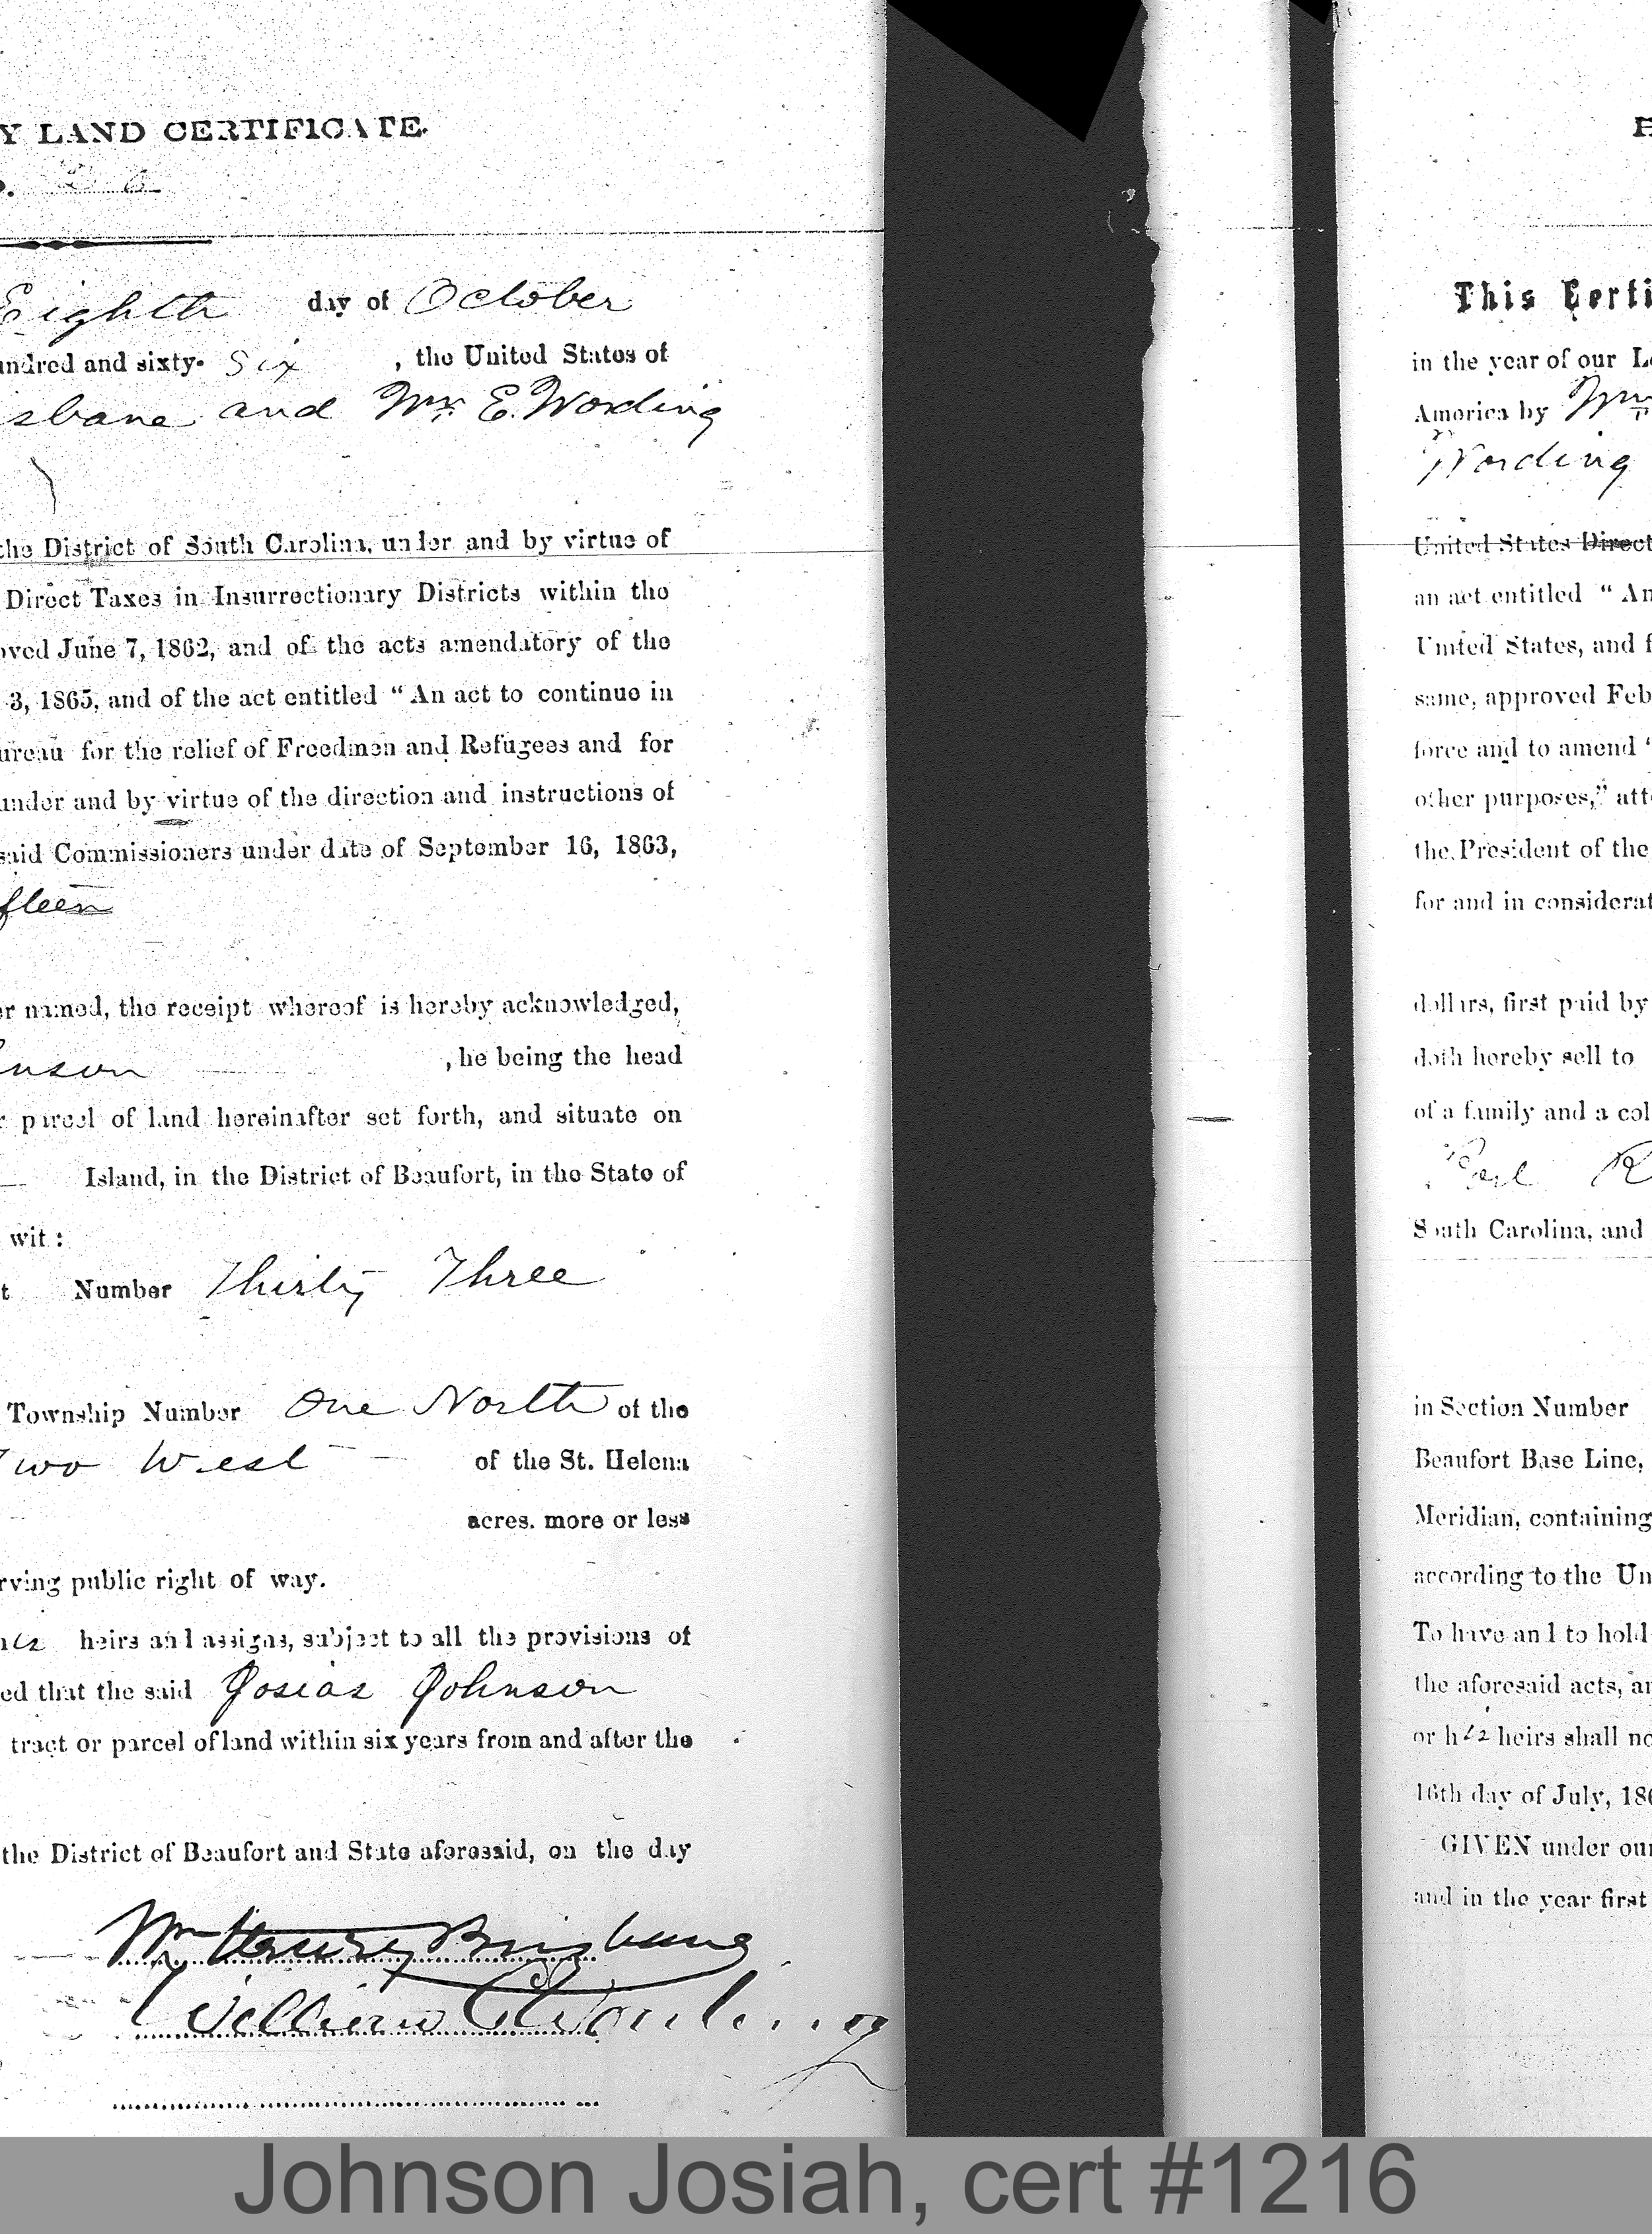 Y LAND CERTIFICATE.
Eighth day of October
undred and sixty- Six , the United States of
sbane and Wm E. Wording
the District of South Carolina, under and by virtue of
Direct Taxes in Insurrectionary Districts within the
oved June 7, 1862, and of the acts amendatory of the
3, 1865, and of the act entitled “An act to continue in
ureau for the relief of Freedmen and Refugees and for
under and by virtue of the direction and instructions of
said Commissioners under date of September 16, 1863,
fteen
er named, the receipt whereof is hereby acknowledged,
nson , he being the head
r parcel of land hereinafter set forth, and situate on
Island, in the District of Beaufort, in the State of
wit :
t Number Thirty Three
Township Number One North of the
Two West of the St. Helena
acres. more or less
rving public right of way.
his heirs and assigns, subject to all the provisions of
ed that the said Josias Johnson
tract or parcel of land within six years from and after the
the District of Beaufort and State aforesaid, on the day
Wm Henry Brisbane
William E. Wording
This Certi
in the year of our L
America by Wm
Wording
United States Direct
an act entitled “ An
United States, and f
same, approved Feb
force and to amend “
other purposes,” att
the President of the
for and in considerat
dollars, first paid by
doth hereby sell to
of a family and a col
Port R
South Carolina, and
in Section Number
Beaufort Base Line,
Meridian, containing
according to the Un
To have and to hold
the aforesaid acts, an
or his heirs shall no
16th day of July, 186
GIVEN under our
and in the year first
Johnson Josiah, cert #1216